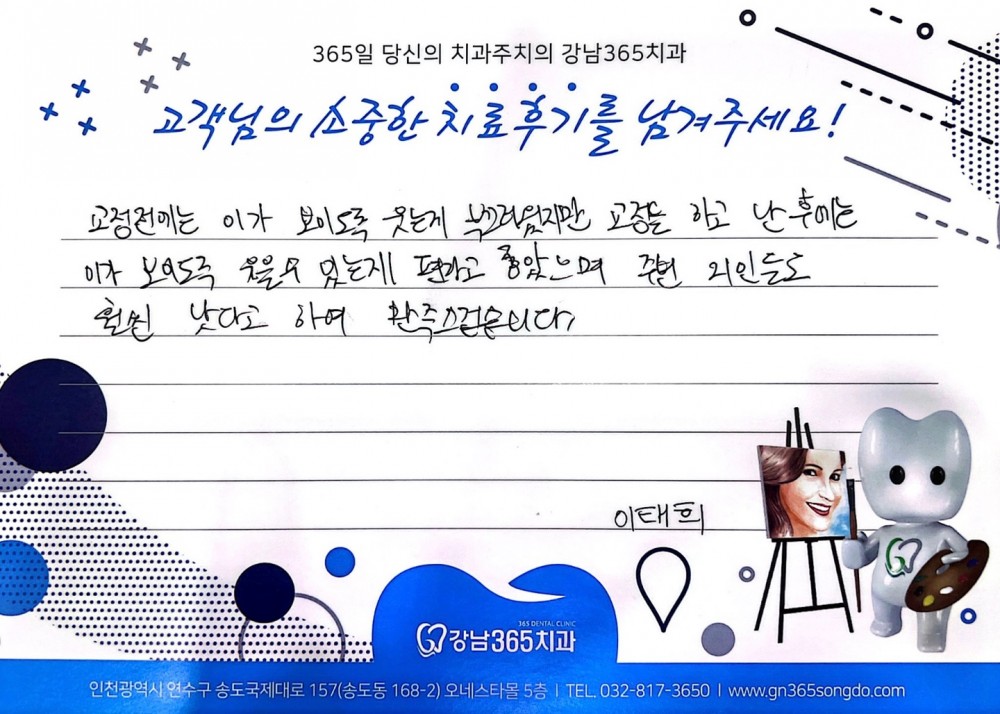 365일 당신의 치과주치의 강남365치과
고객님의 소중한 치료후기를 남겨주세요!
교정전에는 이가 보이도록 웃는게 부끄러웠지만 교정을 하고 난 후에는
이가 보이도록 웃을수 있는게 편하고 좋았으며 주변 지인들도
훨씬 낫다고 하여 만족스럽습니다.
이태희
365 DENTAL CLINIC
강남365치과
인천광역시 연수구 송도국제대로 157(송도동 168-2) 오네스타몰 5층 | TEL. 032-817-3650 | www.gn365songdo.com